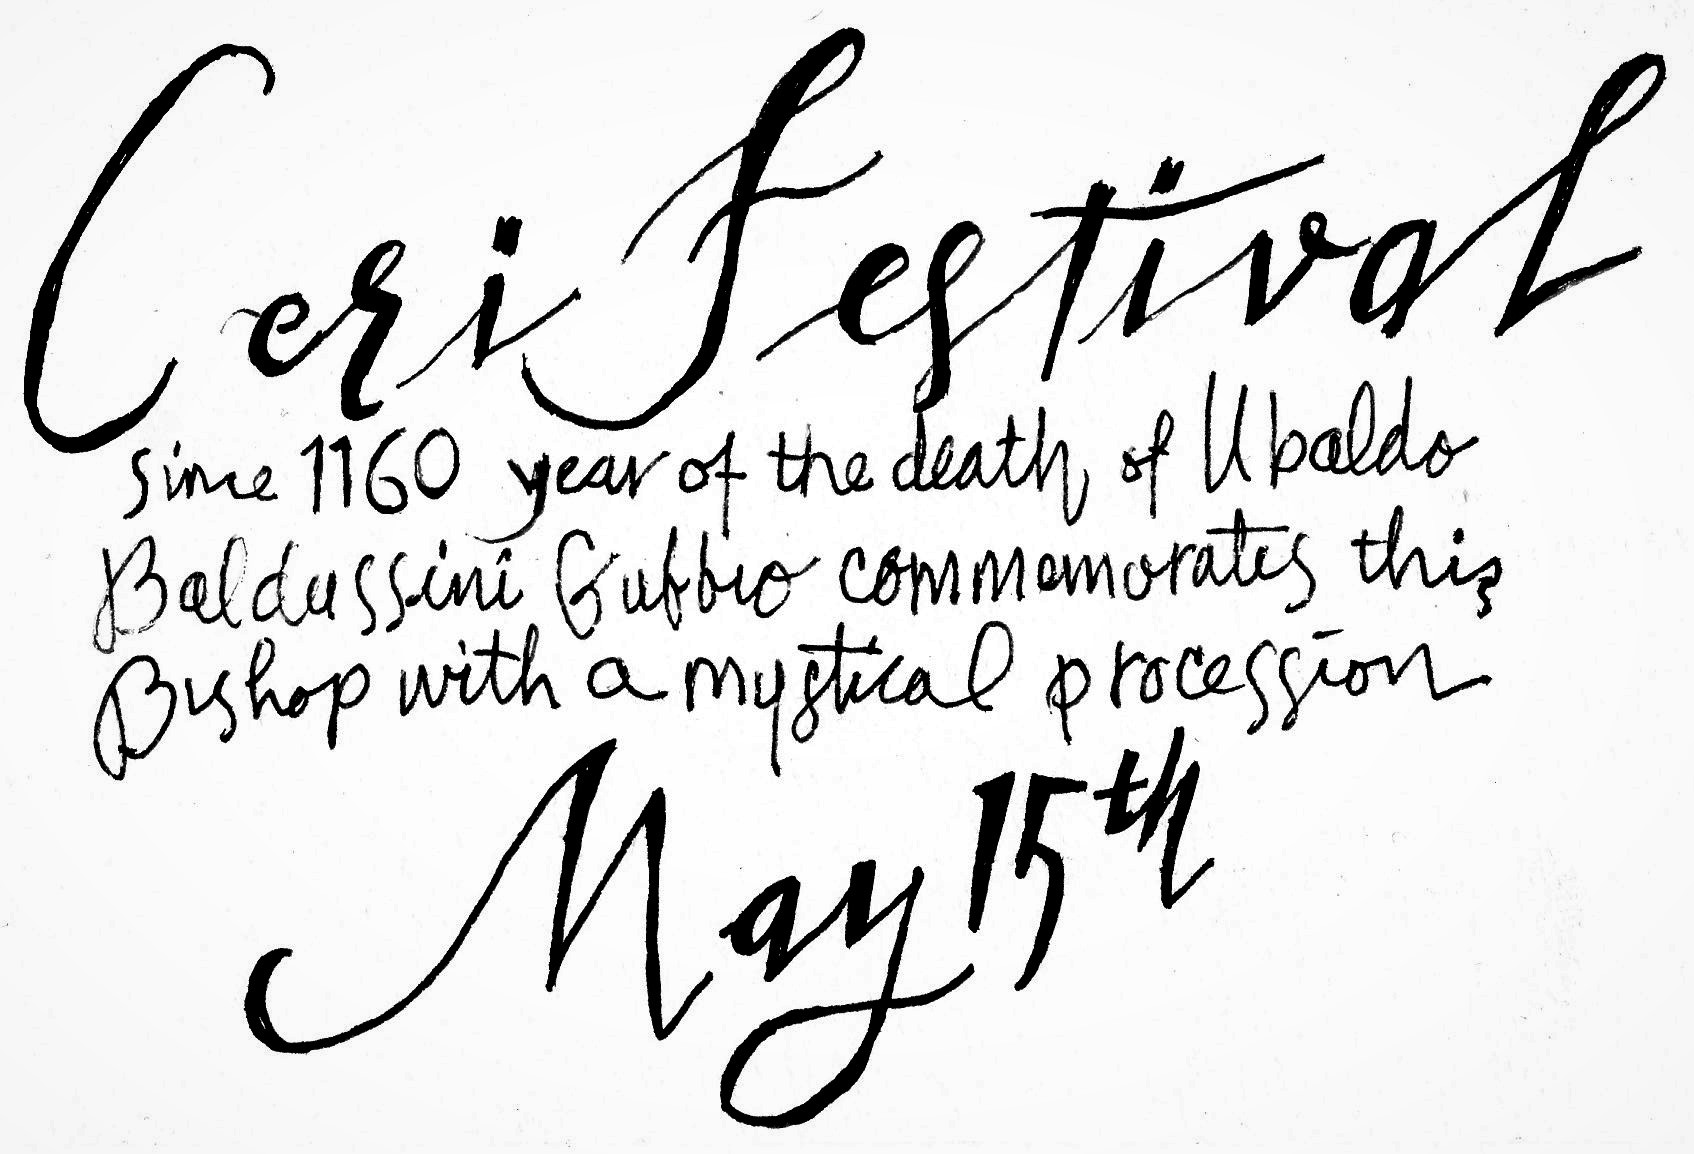 Ceri Festival
since 1160 year of the death of Ubaldo
Baldussini Gubbio commemorates this
Bishop with a mystical procession
May 15th